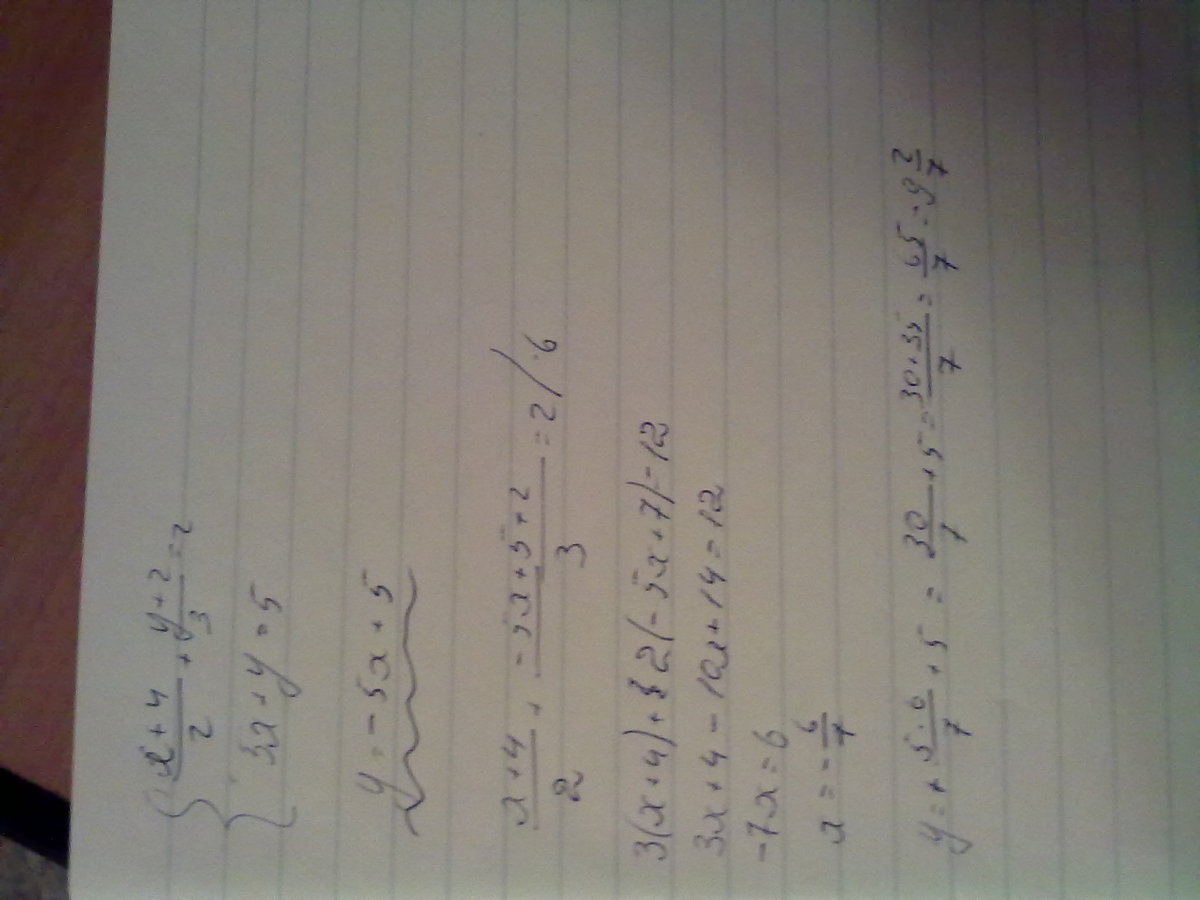 { (x+4)/2 + (y+2)/3 = 2
5x + y = 5
y = -5x + 5
(x+4)/2 + (-5x+5+2)/3 = 2 / ·6
3(x+4) + 2(-5x+7) = 12
3x + 4 - 10x + 14 = 12
-7x = 6
x = -6/7
y = + 5·6/7 + 5 = 30/7 + 5 = (30+35)/7 = 65/7 = 9 2/7